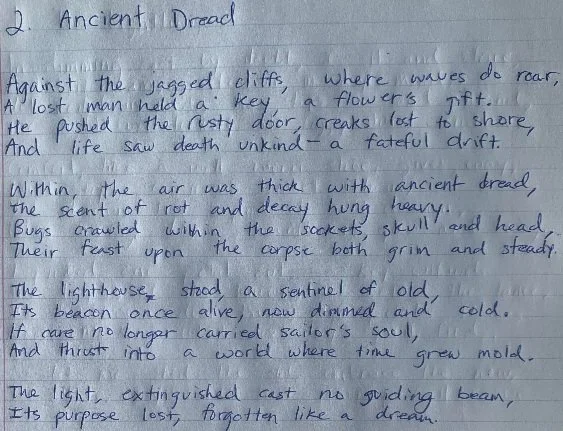 2. Ancient Dread
Against the jagged cliffs, where waves do roar,
A lost man held a key, a flower's gift.
He pushed the rusty door, creaks lost to shore,
And life saw death unkind — a fateful drift.
Within, the air was thick with ancient dread,
The scent of rot and decay hung heavy.
Bugs crawled within the sockets, skull and head,
Their feast upon the corpse both grim and steady.
The lighthouse, stood, a sentinel of old,
Its beacon once alive, now dimmed and cold.
It care no longer carried sailor's soul,
And thrust into a world where time grew mold.
The light, extinguished cast no guiding beam,
Its purpose lost, forgotten like a dream.